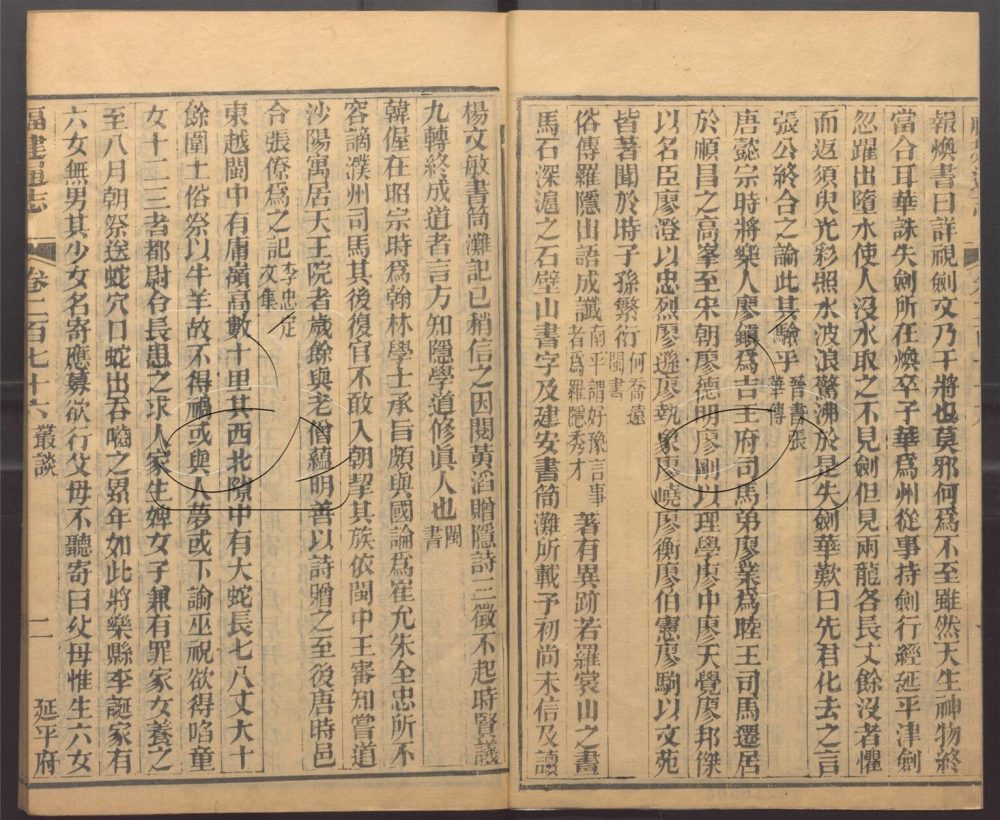 報煥書曰詳視劍文乃干將也莫邪何爲不至雖然天生神物終
當合耳華誅失劍所在煥卒子華爲州從事持劍行經延平津劍
忽躍出墮水使人沒水取之不見劍但見兩龍各長丈餘沒者懼
而返須臾光彩照水波浪驚沸於是失劍華歎曰先君化去之言
張公終合之論此其驗乎晉書張華傳
唐懿宗時將樂人廖鎭爲吉王府司馬弟廖業爲睦王司馬遷居
於順昌之高峯至宋朝廖德明廖剛以理學廖中廖天覺廖邦傑
以名臣廖澄以忠烈廖遜廖執象廖嶢廖衡廖伯憲廖駒以文苑
皆著聞於時子孫繁衍何喬遠閩書
俗傳羅隱出語成讖南平謂好豫言事者爲羅隱秀才 著有異跡若羅裳山之畫
馬石深滬之石壁山書字及建安書筒灘所載予初尚未信及讀
楊文敏書筒灘記已稍信之因閱黃滔贈隱詩三徵不起時賢議
九轉終成道者言方知隱學道修眞人也閩書
韓偓在昭宗時爲翰林學士承旨頗與國論爲崔允朱全忠所不
容謫濮州司馬其後復官不敢入朝挈其族依閩中王審知嘗道
沙陽寓居天王院者歲餘與老僧蘊明善以詩贈之至後唐時邑
令張僚爲之記李忠定文集
東越閩中有庸嶺高數十里其西北隙中有大蛇長七八丈大十
餘圍土俗祭以牛羊故不得禍或與人夢或下諭巫祝欲得啗童
女十二三者都尉令長患之求人家生婢女子兼有罪家女養之
至八月朝祭送蛇穴口蛇出吞嚙之累年如此將樂縣李誕家有
六女無男其少女名寄應募欲行父母不聽寄曰父母惟生六女
福建通志 卷二百七十六 叢談 二 延平府